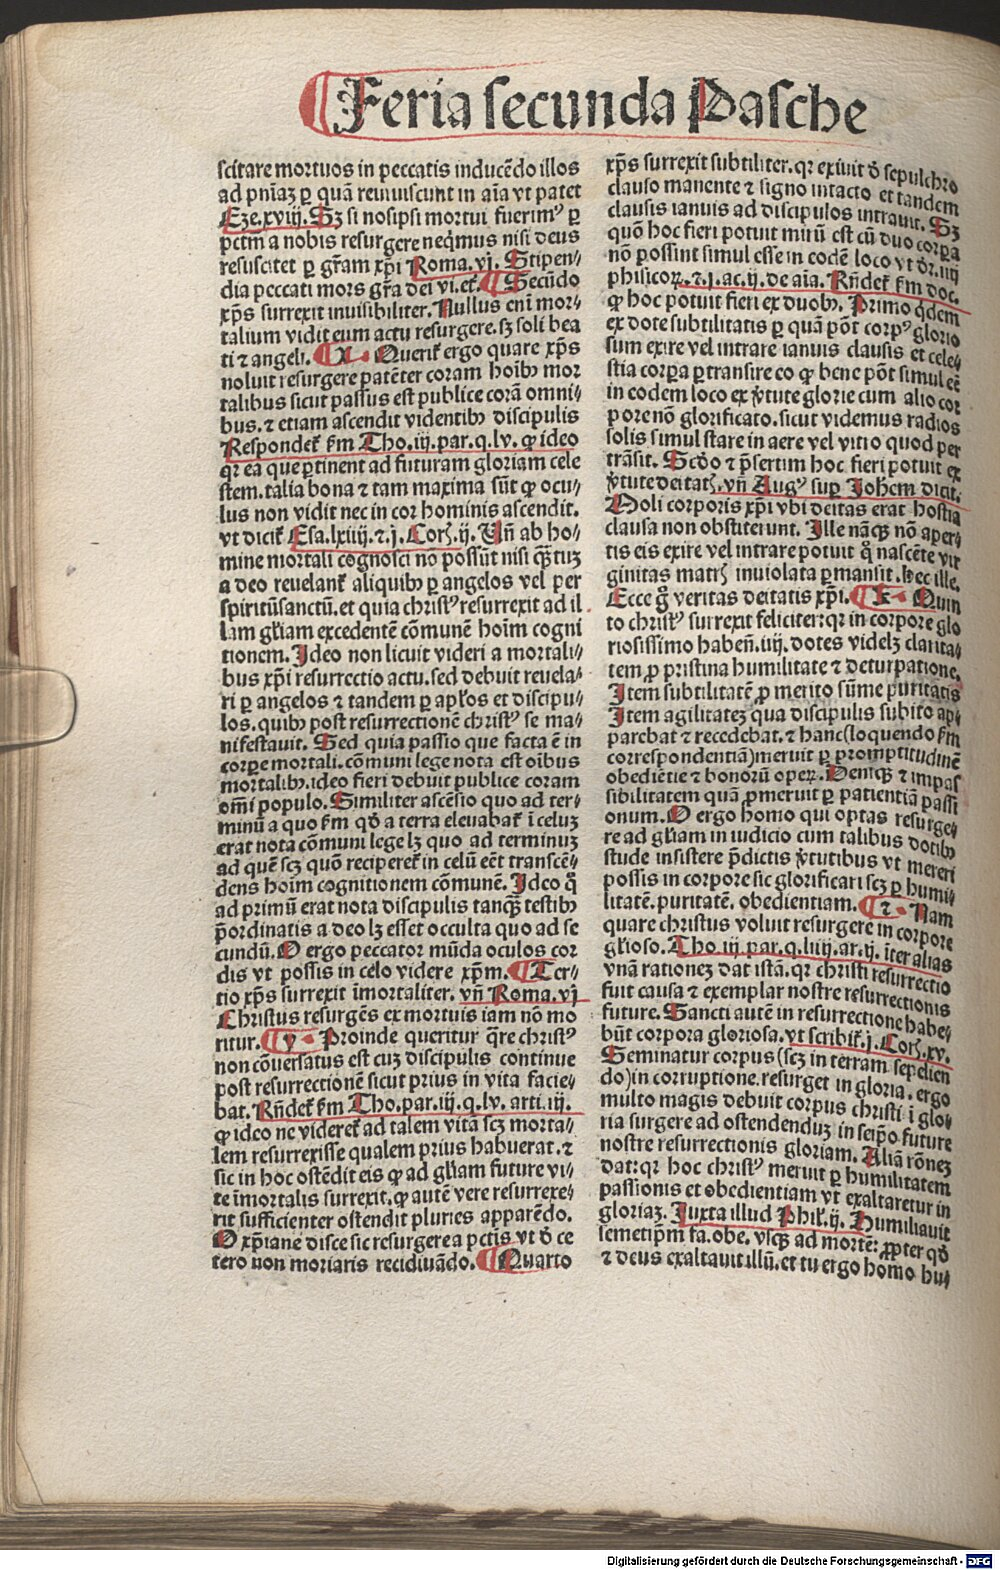 Feria secunda Pasche
scitare mortuos in peccatis inducēdo illos
ad pn̄iaꝫ ꝑ quā reuiuiscunt in aīa vt patet
Eze.xviij. Sꝫ si nosipsi mortui fuerimꝰ ꝑ
pctm̄ a nobis resurgere neqͥmus nisi deus
resuscitet ꝑ gr̄am xp̄i Roma.vj. Stipen⸗
dia peccati mors gr̄a dei vi.etꝭ. Secūdo
xp̄s surrexit inuisibiliter. Nullus enī mor⸗
talium vidit eum actu resurgere. sꝫ soli bea
ti ⁊ angeli. X. Querit̉ ergo quare xp̄s
noluit resurgere patēter coram hoībꝫ mor
talibus sicut passus est publice corā omni⸗
bus. ⁊ etiam ascendit videntibꝫ discipulis
Respondet̉ ẜm Tho.iij.par.q.lv. ꝙ ideo
qꝛ ea que ꝑtinent ad futuram gloriam cele
stem. talia bona ⁊ tam maxima sūt ꝙ ocu⸗
lus non vidit nec in cor hominis ascendit.
vt dicit̉ Esa.lxiiij.⁊.j.Corꝶ.ij. Vn̄ ab ho⸗
mine mortali cognosci nō possūt nisi qꝫtuꝫ
a deo reuelant̉ aliquibꝫ ꝑ angelos vel per
spiritūsanctū. et quia christꝰ resurrexit ad il
lam gl̄iam excedentē cōmunē hoīm cogni
tionem. Ideo non licuit videri a mortali⸗
bus xp̄i resurrectio actu. sed debuit reuela⸗
ri ꝑ angelos ⁊ tandem ꝑ apl̄os et discipu⸗
los. quibꝫ post resurrectionē christꝰ se ma⸗
nifestauit. Sed quia passio que facta ē in
corꝑe mortali. cōmuni lege nota est oībus
mortalibꝫ. ideo fieri debuit publice coram
om̄i populo. Similiter ascēsio quo ad ter⸗
minū a quo ẜm qđ a terra eleuabat̉ ī celuꝫ
erat nota cōmuni lege lꝫ quo ad terminuꝫ
ad quē scꝫ quō reciperet̉ in celū eēt transcē⸗
dens hoīm cognitionem cōmunē. Ideo qͦ
ad primū erat nota discipulis tanqꝫ testibꝫ
p̄ordinatis a deo lꝫ esset occulta quo ad se
cundū. O ergo peccator mūda oculos cor
dis vt possis in celo videre xp̄m. Ter⸗
tio xp̄s surrexit īmortaliter. vn̄ Roma.vj
Christus resurgēs ex mortuis iam nō mo
ritur. y Proinde queritur q̄re christꝰ
non cōuersatus est cuꝫ discipulis continue
post resurrectionē sicut prius in vita facie⸗
bat. Rn̄det̉ ẜm Tho.par.iij.q.lv.arti.iij.
ꝙ ideo ne videret̉ ad talem vitā scꝫ morta⸗
lem resurrexisse qualem prius habuerat. ⁊
sic in hoc ostēdit eis ꝙ ad gl̄iam future vi⸗
te īmortalis surrexit. ꝙ autē vere resurrexe⸗
rit sufficienter ostendit pluries apparēdo.
O xp̄iane disce sic resurgere a pctīs vt đ ce
tero non moriaris recidiuādo. Quarto
xp̄s surrexit subtiliter. qꝛ exiuit đ sepulchro
clauso manente ⁊ signo intacto et tandem
clausis ianuis ad discipulos intrauit. Sꝫ
quō hoc fieri potuit mirū est cū duo corꝑa
nō possint simul esse in codē loco vt dr̄.iiij
phisicoꝝ.⁊.j.ac.ij.de aīa. Rn̄det̉ ẜm doc.
ꝙ hoc potuit fieri ex duobꝫ. Primo qͥdem
ex dote subtilitatis ꝑ quā pōt corpꝰ glorio
sum exire vel intrare ianuis clausis et cele⸗
stia corꝑa ꝑtransire eo ꝙ bene pōt simul eē
in eodem loco ex v̓tute glorie cum alio cor
pore nō glorificato. sicut videmus radios
solis simul stare in aere vel vitro quod per
trāsit. Scđo ⁊ p̄sertim hoc fieri potuit ex
v̓tute deitatꝭ. vn̄ Augꝰ suꝑ Johēm dicit.
Moli corporis xp̄i vbi deitas erat hostia
clausa non obstiterunt. Ille nāqꝫ nō aper⸗
tis eis exire vel intrare potuit qͦ nascēte vir
ginitas matrꝭ inuiolata ꝑmansit. hec ille.
Ecce gͦ veritas deitatis xp̄i. Quin
to christꝰ surrexit feliciter: qꝛ in corpore glo
riosissimo haben̄.iiij.dotes videlꝫ clarita⸗
tem ꝓ pristina humilitate ⁊ deturpatione.
Item subtilitatē ꝓ merito sūme puritatis
Item agilitateꝫ qua discipulis subito ap⸗
parebat ⁊ recedebat. ⁊ hanc (loquendo ẜm
correspondentiā) meruit ꝑ promptitudinē
obediētie ⁊ bonorū operꝝ. Deniqꝫ ⁊ impas
sibilitatem quā ꝓmeruit ꝑ patientiā passi
onum. O ergo homo qui optas resurge⸗
re ad gl̄iam in iudicio cum talibus dotibꝫ
stude insistere p̄dictis v̓tutibus vt mereri
possis in corpore sic glorificari scꝫ ꝑ humi⸗
litatē. puritatē. obedientiam. Nam
quare christus voluit resurgere in corpore
gl̄ioso. Tho.iij.par.q.liiij.ar.ij. īter alias
vnā rationeꝫ dat istā. qꝛ christi resurrectio
fuit causa ⁊ exemplar nostre resurrectionis
future. Sancti autē in resurrectione habe⸗
būt corpora gloriosa. vt scribit̉.j.Corꝶ.xv.
Seminatur corpus (scꝫ in terram sepelien
do) in corruptione. resurget in gloria. ergo
multo magis debuit corpus christi ī glo⸗
ria surgere ad ostendenduꝫ in seip̄o future
nostre resurrectionis gloriam. Aliā rōneꝫ
dat: qꝛ hoc christꝰ meruit ꝑ humilitatem
passionis et obedientiam vt exaltaretur in
gloriaꝫ. Juxta illud Phil̉.ij. Humiliauit
semetip̄m fa.obe. vsqꝫ ad mortē: ꝓpter qđ
⁊ deus exaltauit illū. et tu ergo homo hu⸗
Digitalisierung gefördert durch die Deutsche Forschungsgemeinschaft - DFG